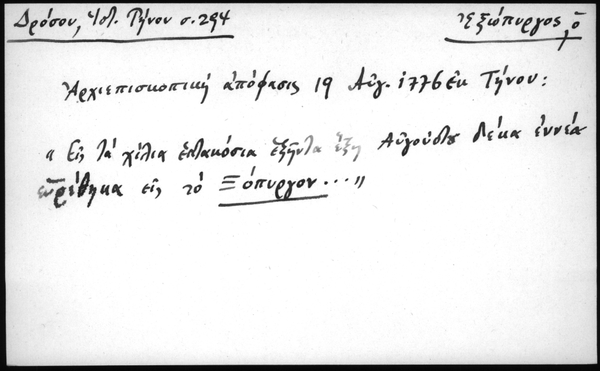 Δρόσου, Ἱστ. Τήνου σ. 294
Ἐξιόπυργος, ὁ
Ἀρχιεπισκοπική ἀπόφασις 19 Αὐγ. 1776 ἐκ Τήνου:
« Εἰς τά χίλια ἑπτακόσια ἑξῆντα ἕξη Αὐγούστου δέκα ἐννέα
εὑρέθηκα εἰς τό Ξόπυργον... »